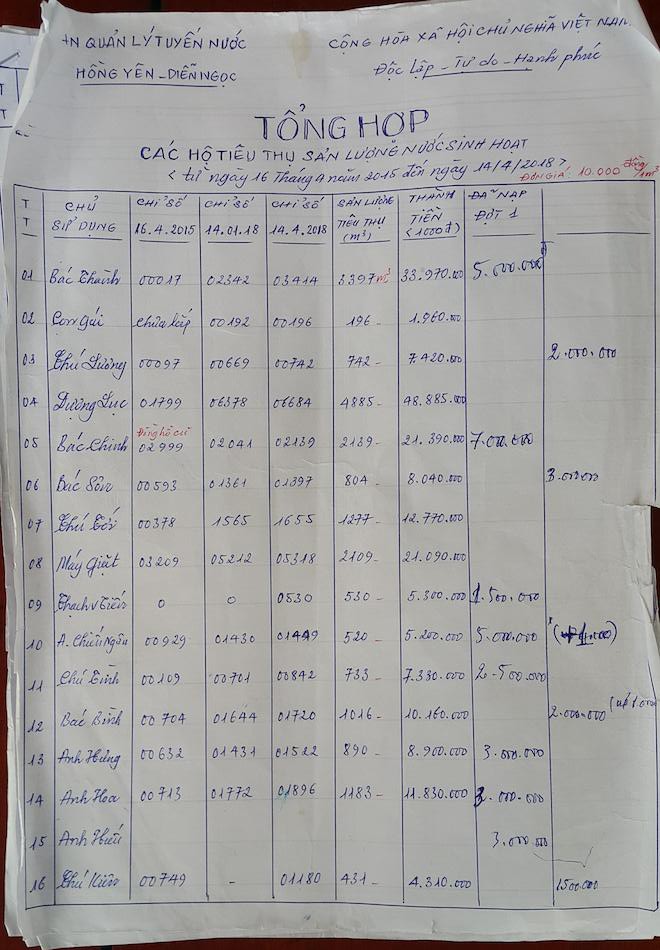 QUẢN LÝ TUYẾN NƯỚC
CỘNG HÒA XÃ HỘI CHỦ NGHĨA VIỆT NAM
HỒNG YÊN - DIỄN NGỌC
Độc Lập - Tự do - Hạnh phúc
TỔNG HỢP
CÁC HỘ TIÊU THỤ SẢN LƯỢNG NƯỚC SINH HOẠT
< từ ngày 16 Tháng 4 năm 2015 đến ngày 14/4/2018 >
ĐƠN GIÁ: 10.000 đồng/m³
TT CHỦ SỬ DỤNG CHỈ SỐ 16.4.2015 CHỈ SỐ 14.01.18 CHỈ SỐ 14.4.2018 SẢN LƯỢNG TIÊU THỤ (m³) THÀNH TIỀN <1000đ> ĐÃ NẠP ĐỢT 1
01 Bác Thành 00017 02342 03414 3397 m³ 33.970.000 5.000.000đ
02 Con Gái chưa lắp 00192 00196 196 - 1.960.000
03 Chú Lương 00097 00669 00742 742 - 7.420.000 2.000.000
04 Dượng Lục 01799 06378 06684 4885 - 48.885.000
05 Bác Chinh Đồng hồ cũ 02999 02041 02139 2139 - 21.390.000 7.000.000
06 Bác Sơn 00593 01361 01397 804 - 8.040.000 3.000.000
07 Chú 00378 1565 1655 1277 - 12.770.000
08 Máy Giặt 03209 05212 05318 2109 - 21.090.000
09 Thạch v Tiến 0 0 0530 530 - 5.300.000 1.500.000
10 A. Chiến Ngân 00929 01430 01449 520 - 5.200.000 5.000.000
11 Chú Bình 00109 00701 00842 733 - 7.330.000 2.500.000
12 Bác Bình 00704 01644 01720 1016 - 10.160.000 2.000.000
13 Anh Hưng 00632 01431 01522 890 - 8.900.000 3.000.000
14 Anh Hoa 00713 01772 01896 1183 - 11.830.000 2.000.000
15 Anh Hiếu 3.000.000
16 Chú Kiên 00749 - 01180 431 - 4.310.000 1500.000